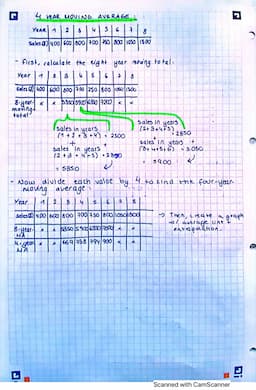 4 YEAR MOVING AVERAGE
Year 1 2 3 4 5 6 7 8
Sales($) 400 600 800 700 750 800 1050 1500
- First, calculate the eight year moving total:
Year 1 2 3 4 5 6 7 8
Sales($) 400 600 800 700 750 800 1050 1500
8-year moving total x x 5350 x x
sales in years
(1+2+3+4) = 2500
+
sales in years
(2+3+4+5) = 2850
= 5350
sales in years
(2+3+4+5) 2850
+
sales in years
(3+4+5+6) = 3050
= 5900
- Now divide each value by 8 to find the four-year
moving average:
Year 1 2 3 4 5 6 7 8
Sales($) 400 600 800 700 750 800 1050 1500
8-year x x 5350 5900 x x
4-year MA x x 669 738 x x
→ Then, create a graph
w/ average line &
extrapolation.
Scanned with CamScanner